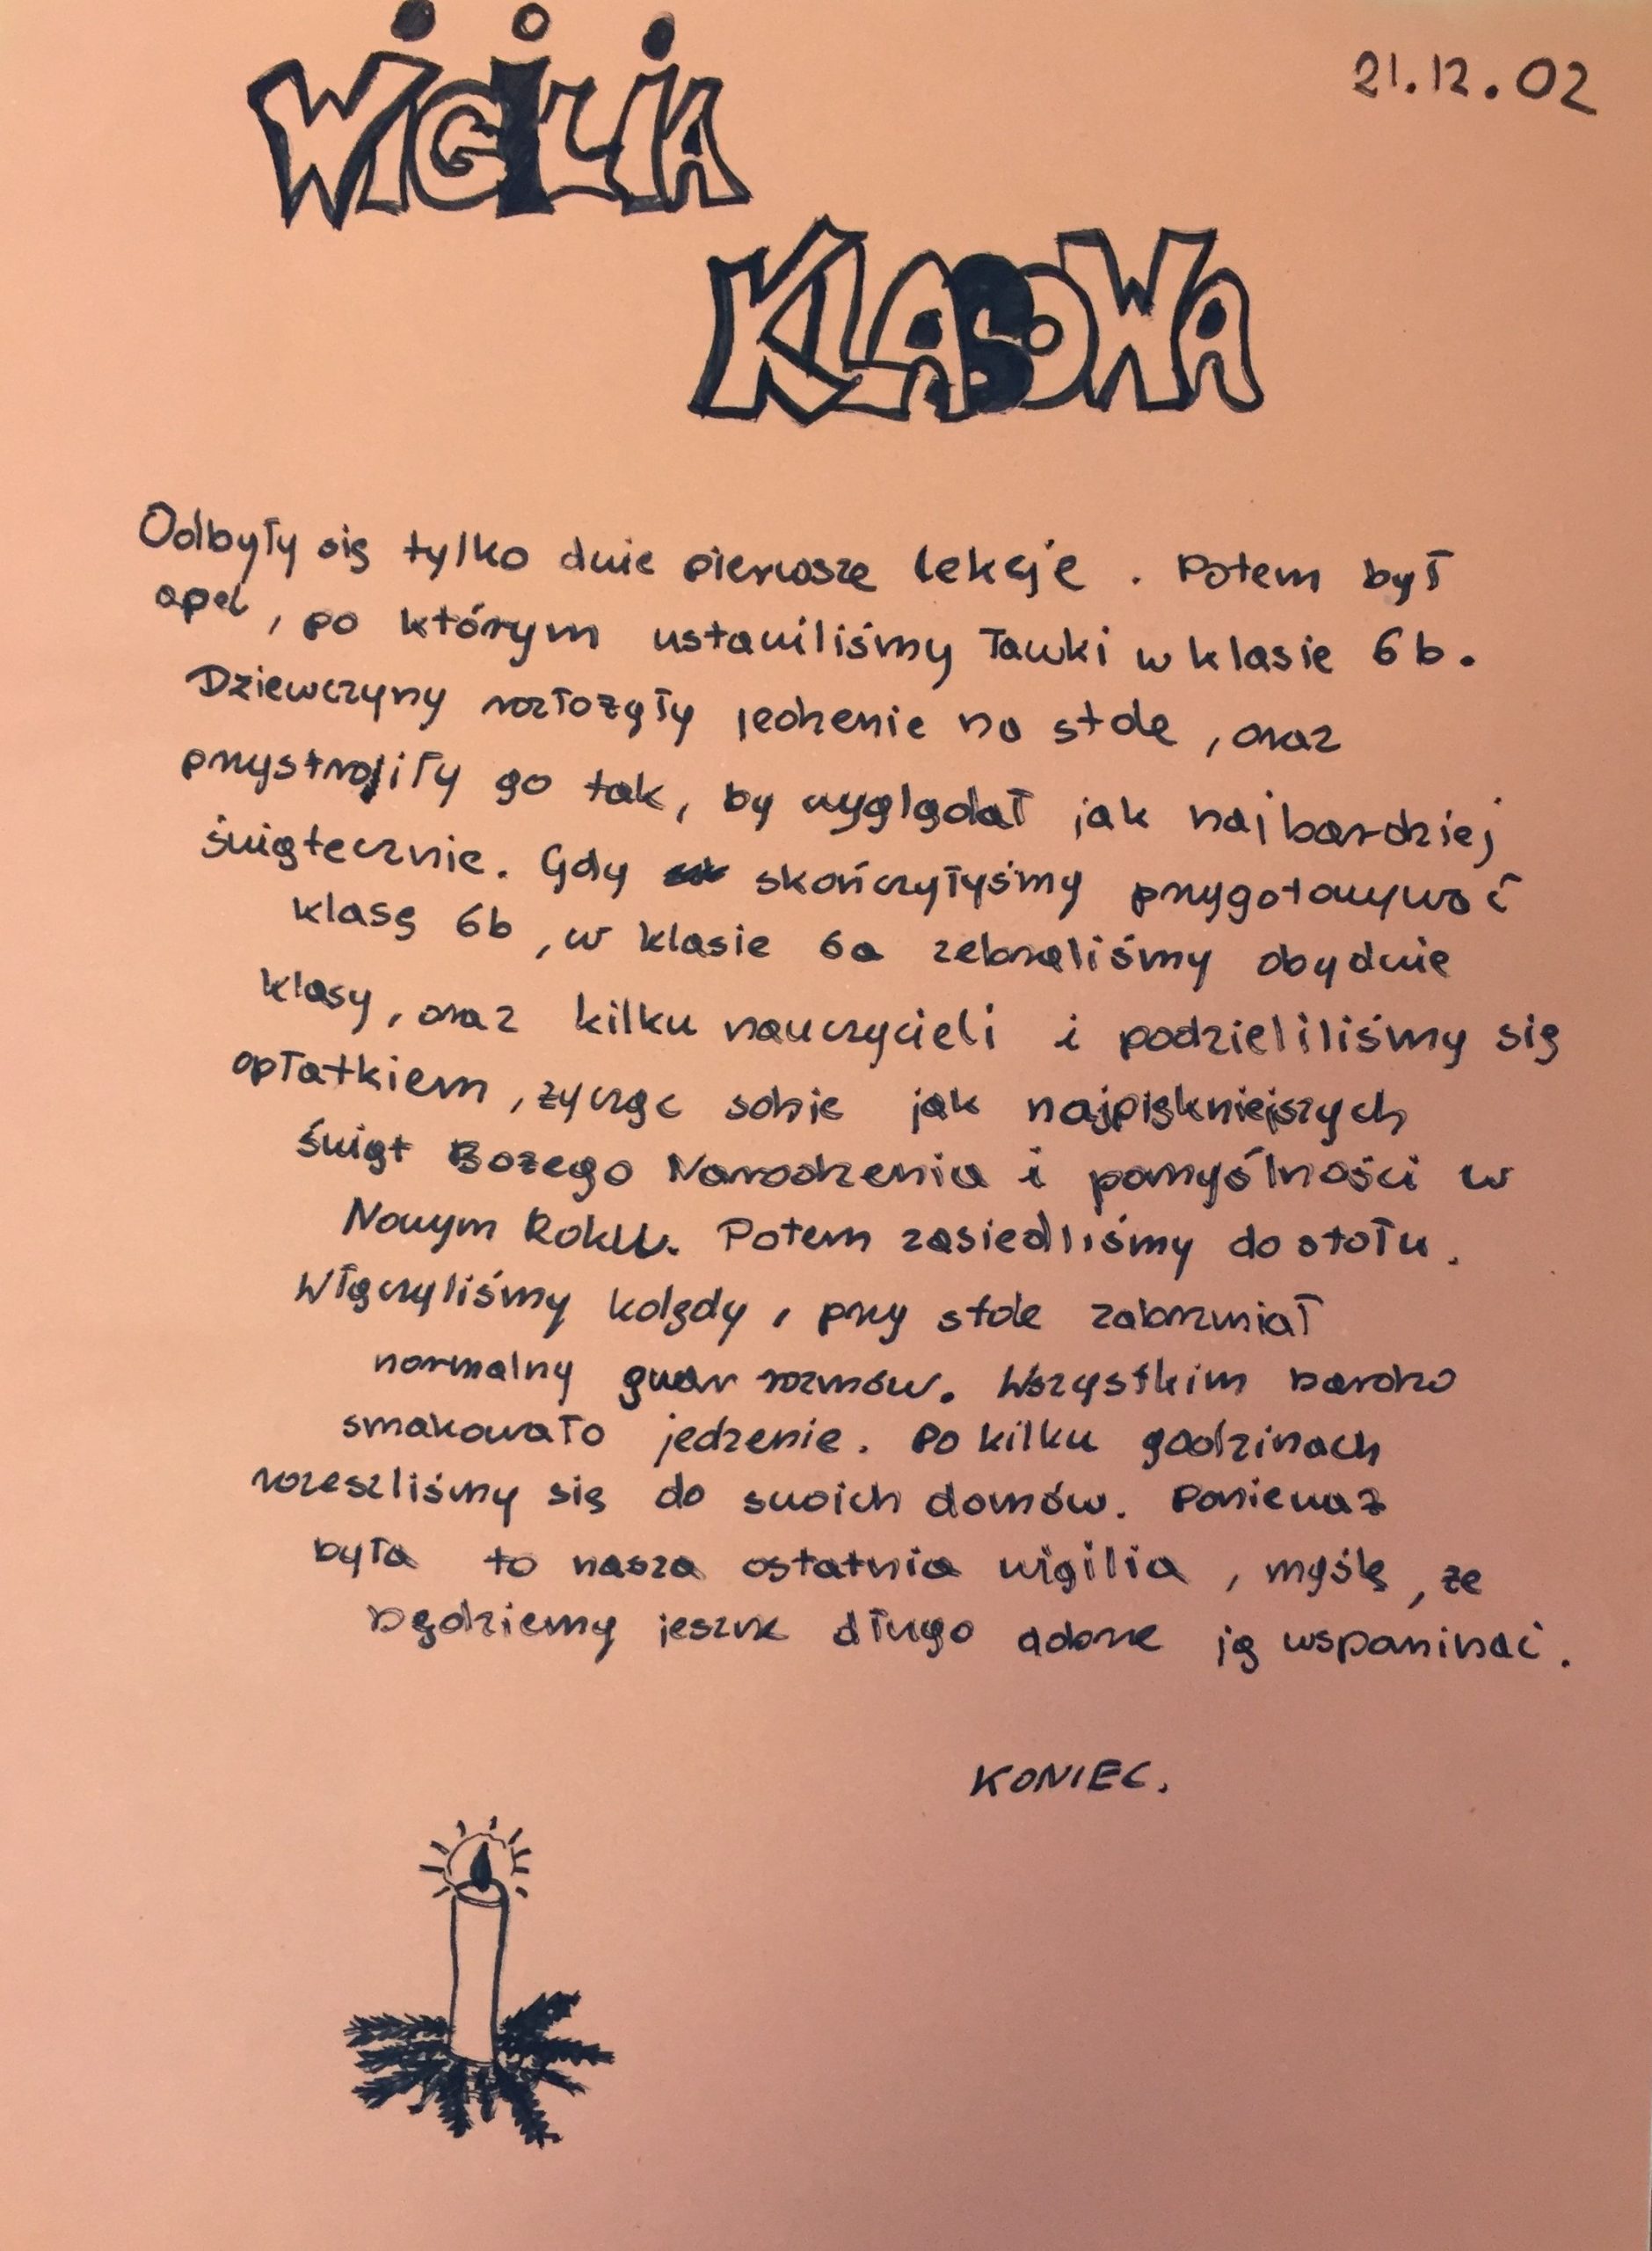 WiGiLiA
21.12.02
KLASOWA
Odbyły się tylko dwie pierwsze lekcje. Potem był
apel, po którym ustawiliśmy ławki w klasie 6b.
Dziewczyny rozłożyły jedzenie na stole, oraz
przystroiły go tak, by wyglądał jak najbardziej
świątecznie. Gdy skończyłyśmy przygotowywać
klasę 6b, w klasie 6a zebraliśmy obydwie
klasy, oraz kilku nauczycieli i podzieliliśmy się
opłatkiem, życząc sobie jak najpiękniejszych
świąt Bożego Narodzenia i pomyślności w
Nowym Roku. Potem zasiedliśmy do stołu.
Włączyliśmy kolędy, przy stole zabrzmiał
normalny gwar rozmów. Wszystkim bardzo
smakowało jedzenie. Po kilku godzinach
rozeszliśmy się do swoich domów. Ponieważ
była to nasza ostatnia wigilia, myślę, że
będziemy jeszcze długo dobrze ją wspominać.
KONIEC.